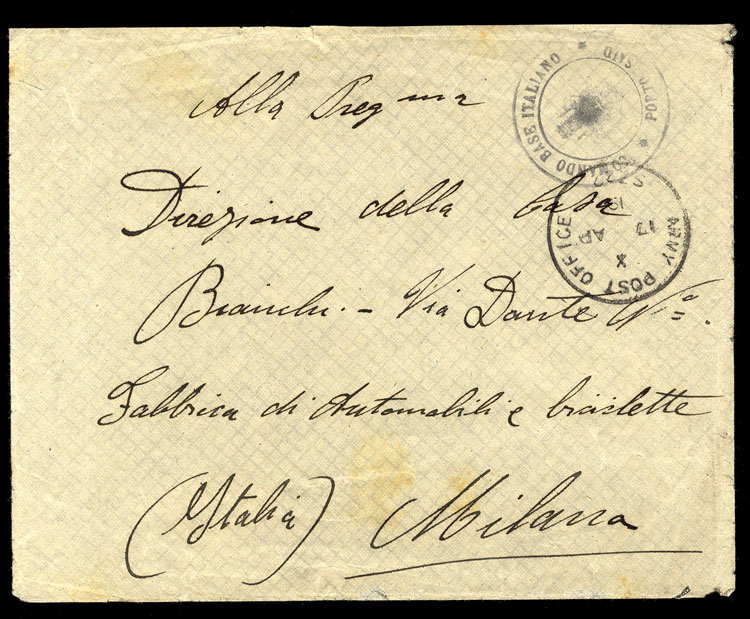 Alla Preg ma
Direzione della Casa
Bianchi. - Via Dante No.
Fabbrica di Automobili e biciclette
(Italia) Milano
COMANDO BASE ITALIANO * PORTO SAID *
ARMY POST OFFICE
X
17 AP
19